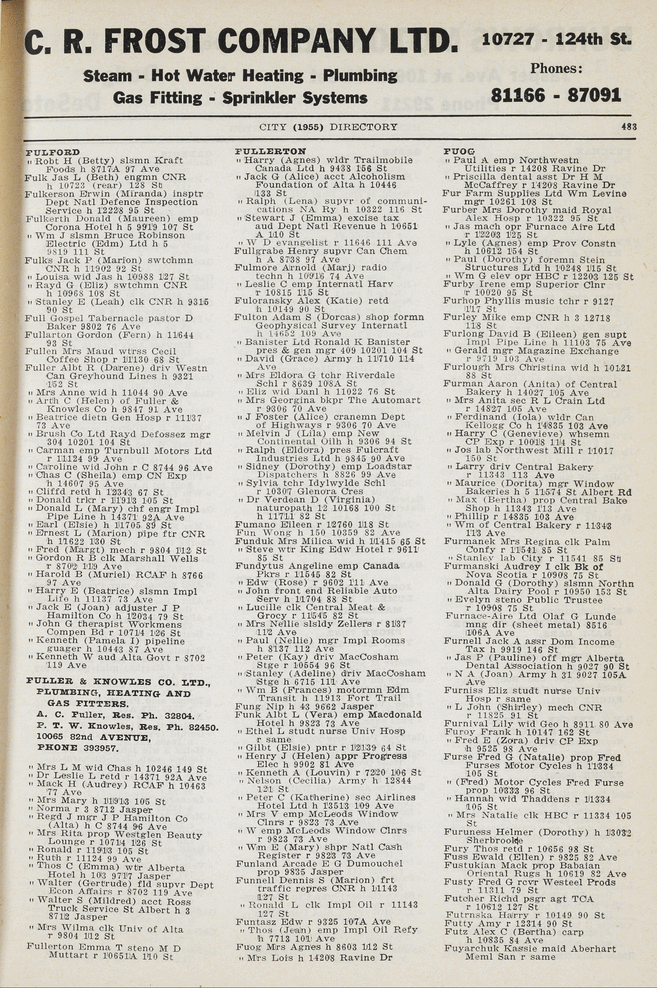 C. R. FROST COMPANY LTD. 10727 - 124th St.
Steam - Hot Water Heating - Plumbing
Gas Fitting - Sprinkler Systems
Phones:
81166 - 87091
CITY (1955) DIRECTORY 483
FULFORD
" Robt H (Betty) slsmn Kraft
Foods h 8717A 97 Ave
Fulk Jas L (Beth) engmn CNR
h 10723 (rear) 128 St
Fulkerson Erwin (Miranda) insptr
Dept Natl Defence Inspection
Service h 12228 95 St
Fulkerth Donald (Maureen) emp
Corona Hotel h 5 9919 107 St
" Wm J slsmn Bruce Robinson
Electric (Edm) Ltd h 5
9819 111 St
Fulks Jack P (Marion) swtchmn
CNR h 11902 92 St
" Louisa wid Jas h 10988 127 St
" Rayd G (Eliz) swtchmn CNR
h 10968 108 St
" Stanley E (Leah) clk CNR h 9315
90 St
Full Gospel Tabernacle pastor D
Baker 9802 76 Ave
Fullarton Gordon (Fern) h 11644
92 St
Fullen Mrs Maud wtrss Cecil
Coffee Shop r 11130 68 St
Fuller Albt R (Darene) driv Westn
Can Greyhound Lines h 9321
152 St
" Mrs Anne wid h 11044 90 Ave
" Arth C (Helen) of Fuller &
Knowles Co h 9847 91 Ave
" Beatrice dietn Gen Hosp r 11137
73 Ave
" Brush Co Ltd Rayd Defossez mgr
304 10201 104 St
" Carman emp Turnbull Motors Ltd
r 11124 99 Ave
" Caroline wid John r C 8744 96 Ave
" Chas C (Sheila) emp CN Exp
h 14607 95 Ave
" Cliffd retd h 12343 67 St
" Donald trkr r 11913 105 St
" Donald L (Mary) chf engr Impl
Pipe Line h 14371 92A Ave
" Earl (Elsie) h 11705 89 St
" Ernest L (Marion) pipe ftr CNR
h 11622 130 St
" Fred (Margt) mech r 9804 112 St
" Gordon R B clk Marshall Wells
r 8702 119 Ave
" Harold B (Muriel) RCAF h 8766
97 Ave
" Harry E (Beatrice) slsmn Impl
Life h 11137 73 Ave
" Jack E (Joan) adjuster J P
Hamilton Co h 12034 79 St
" John G therapist Workmens
Compen Bd r 10714 126 St
" Kenneth (Pamela I) pipeline
guager h 10443 87 Ave
" Kenneth W aud Alta Govt r 8702
119 Ave
FULLER & KNOWLES CO. LTD.,
PLUMBING, HEATING AND
GAS FITTERS.
A. C. Fuller, Res. Ph. 32804.
P. T. W. Knowles, Res. Ph. 82450.
10065 82nd AVENUE,
PHONE 393957.
" Mrs L M wid Chas h 10246 149 St
" Dr Leslie L retd r 14371 92A Ave
" Mack H (Audrey) RCAF h 10463
77 Ave
" Mrs Mary h 11913 105 St
" Norma r 3 8712 Jasper
" Regd J mgr J P Hamilton Co
(Alta) h C 8744 96 Ave
" Mrs Rita prop Westglen Beauty
Lounge r 10714 126 St
" Ronald r 11913 105 St
" Ruth r 11124 99 Ave
" Thos C (Emma) wtr Alberta
Hotel h 103 9717 Jasper
" Walter (Gertrude) fld supvr Dept
Econ Affairs r 8702 119 Ave
" Walter S (Mildred) acct Ross
Truck Service St Albert h 3
8712 Jasper
" Mrs Wilma clk Univ of Alta
r 9804 112 St
Fullerton Emma T steno M D
Muttart r 10651A 110 St
FULLERTON
" Harry (Agnes) wldr Trailmobile
Canada Ltd h 9438 156 St
" Jack G (Alice) acct Alcoholism
Foundation of Alta h 10446
133 St
" Ralph (Lena) supvr of communi-
cations NA Ry h 10322 116 St
" Stewart J (Emma) excise tax
aud Dept Natl Revenue h 10651
A 110 St
" W D evangelist r 11646 111 Ave
Fullgrabe Henry supvr Can Chem
h A 8738 97 Ave
Fulmore Arnold (Marj) radio
techn h 10916 74 Ave
" Leslie C emp Internatl Harv
r 10815 115 St
Fuloransky Alex (Katie) retd
h 10149 90 St
Fulton Adam S (Dorcas) shop formn
Geophysical Survey Internatl
h 14652 109 Ave
" Banister Ltd Ronald K Banister
pres & gen mgr 409 10201 104 St
" David (Grace) Army h 11710 114
Ave
" Mrs Eldora G tchr Riverdale
Schl r 8639 108A St
" Eliz wid Danl h 11022 76 St
" Mrs Georgina bkpr The Automart
r 9306 70 Ave
" J Foster (Alice) cranemn Dept
of Highways r 9306 70 Ave
" Melvin J (Lila) emp New
Continental Oilh h 9306 94 St
" Ralph (Eldora) pres Fulcraft
Industries Ltd h 9845 90 Ave
" Sidney (Dorothy) emp Loadstar
Dispatchers h 8826 99 Ave
" Sylvia tchr Idylwylde Schl
r 10307 Glenora Cres
" Dr Verdean D (Virginia)
naturopath 12 10168 100 St
h 11711 82 St
Fumano Eileen r 12760 118 St
Fun Wong h 150 10359 82 Ave
Funduk Mrs Milica wid h 11415 65 St
" Steve wtr King Edw Hotel r 9611
85 St
Fundytus Angeline emp Canada
Pkrs r 11545 82 St
" Edw (Rose) r 9602 111 Ave
" John front end Reliable Auto
Serv h 11704 88 St
" Lucille clk Central Meat &
Grocy r 11545 82 St
" Mrs Nellie slsldy Zellers r 8137
112 Ave
" Paul (Nellie) mgr Impl Rooms
h 8137 112 Ave
" Peter (Kay) driv MacCosham
Stge r 10554 96 St
" Stanley (Adeline) driv MacCosham
Stge h 6715 111 Ave
" Wm B (Frances) motormn Edm
Transit h 11913 Fort Trail
Fung Nip h 43 9662 Jasper
Funk Albt L (Vera) emp Macdonald
Hotel h 9823 73 Ave
" Ethel L studt nurse Univ Hosp
r same
" Gilbt (Elsie) pntr r 12139 64 St
" Henry J (Helen) appr Progress
Elec h 9902 81 Ave
" Kenneth A (Louvin) r 7320 106 St
" Nelson (Cecilia) Army h 12844
121 St
" Peter C (Katherine) sec Airlines
Hotel Ltd h 13513 109 Ave
" Mrs V emp McLeods Window
Clnrs r 9823 73 Ave
" W emp McLeods Window Clnrs
r 9823 73 Ave
" Wm E (Mary) shpr Natl Cash
Register r 9823 73 Ave
Funland Arcade E G Dumouchel
prop 9835 Jasper
Funnell Dennis S (Marion) frt
traffic repres CNR h 11143
127 St
" Ronald L clk Impl Oil r 11143
127 St
Funtasz Edw r 9325 107A Ave
" Thos (Jean) emp Impl Oil Refy
h 7713 101 Ave
Fuog Mrs Agnes h 8603 112 St
" Mrs Lois h 14208 Ravine Dr
FUOG
" Paul A emp Northwestn
Utilities r 14208 Ravine Dr
" Priscilla dental asst Dr H M
McCaffrey r 14208 Ravine Dr
Fur Farm Supplies Ltd Wm Levine
mgr 10261 108 St
Furber Mrs Dorothy maid Royal
Alex Hosp r 10322 95 St
" Jas mach opr Furnace Aire Ltd
r 12203 125 St
" Lyle (Agnes) emp Prov Constn
h 10612 154 St
" Paul (Dorothy) foremn Stein
Structures Ltd h 10248 115 St
" Wm G elev opr HBC r 12203 125 St
Furby Irene emp Superior Clnr
r 10020 95 St
Furhop Phyllis music tchr r 9127
117 St
Furley Mike emp CNR h 3 12718
118 St
Furlong David B (Eileen) gen supt
Impl Pipe Line h 11103 75 Ave
" Gerald mgr Magazine Exchange
r 9719 103 Ave
Furlough Mrs Christina wid h 10121
88 St
Furman Aaron (Anita) of Central
Bakery h 14027 105 Ave
" Mrs Anita sec R L Crain Ltd
r 14827 105 Ave
" Ferdinand (Iola) wldr Can
Kellogg Co h 14835 103 Ave
" Harry C (Genevieve) whsemn
CP Exp r 10018 114 St
" Jos lab Northwest Mill r 11017
150 St
" Larry driv Central Bakery
r 11343 113 Ave
" Maurice (Dorita) mgr Window
Bakeries h 5 11574 St Albert Rd
" Max (Bertha) prop Central Bake
Shop h 11343 113 Ave
" Phillip r 14835 103 Ave
" Wm of Central Bakery r 11343
113 Ave
Furmanek Mrs Regina clk Palm
Confy r 11541 85 St
" Stanley lab City r 11541 85 St
Furmanski Audrey I clk Bk of
Nova Scotia r 10908 75 St
" Donald G (Dorothy) slsmn Northn
Alta Dairy Pool r 10950 153 St
" Evelyn steno Public Trustee
r 10908 75 St
Furnace-Aire Ltd Olaf G Lunde
mng dir (sheet metal) 8516
106A Ave
Furnell Jack A assr Dom Income
Tax h 9919 146 St
" Jas P (Pauline) off mgr Alberta
Dental Association h 9027 90 St
" N A (Joan) Army h 31 9027 105A
Ave
Furniss Eliz studt nurse Univ
Hosp r same
" L John (Shirley) mech CNR
r 11825 91 St
Furnival Lily wid Geo h 8911 80 Ave
Furoy Frank h 10147 162 St
" Fred E (Zora) driv CP Exp
h 9525 98 Ave
Furse Fred G (Natalie) prop Fred
Furses Motor Cycles h 11334
105 St
" (Fred) Motor Cycles Fred Furse
prop 10333 96 St
" Hannah wid Thaddens r 11334
105 St
" Mrs Natalie clk HBC r 11334 105
St
Furuness Helmer (Dorothy) h 13032
Sherbrooke
Fury Thos retd r 10656 98 St
Fuss Ewald (Ellen) r 9825 82 Ave
Fustukian Mack prop Babaian
Oriental Rugs h 10619 82 Ave
Fusty Fred G rcvr Westeel Prods
r 11311 79 St
Futcher Richd psgr agt TCA
r 10612 127 St
Futrnska Harry r 10149 90 St
Futty Amy r 12314 90 St
Futz Alex C (Bertha) carp
h 10835 84 Ave
Fuyarchuk Kassie maid Aberhart
Meml San r same